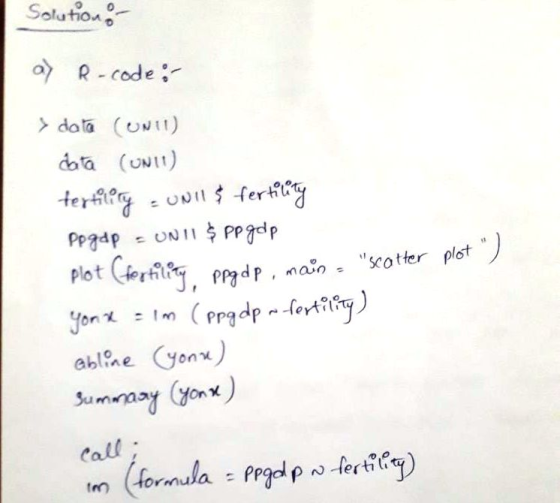 Solution:-
a) R-code:-
> data (UN11)
data (UN11)
fertility = UN11 $ fertility
ppgdp = UN11 $ ppgdp
plot (fertility, ppgdp, main = "scatter plot")
yonx = lm (ppgdp ~ fertility)
abline (yonx)
summary (yonx)
call;
lm (formula = ppgdp ~ fertility)